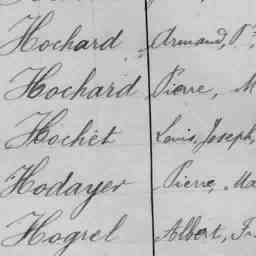 Hochard Armand, P.
Hochard Pierre, M
Hochet Louis, Joseph,
Hodayer Pierre, Ma
Hogrel Albert, Fr